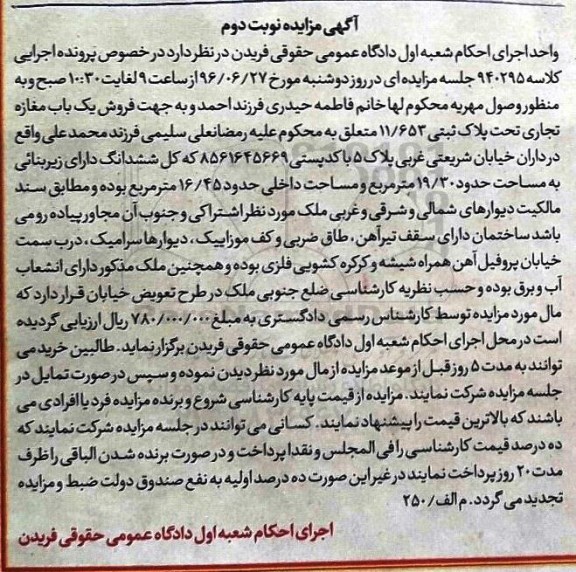 آگهی مزایده نوبت دوم
واحد اجرای احکام شعبه اول دادگاه عمومی حقوقی فریدن در نظر دارد در خصوص پرونده اجرایی
کلاسه ۹۴۰۲۹۵ جلسه مزایده ای در روز دوشنبه مورخ ۹۶/۰۶/۲۷ از ساعت ۹ لغایت ۱۰:۳۰ صبح و به
منظور وصول مهریه محکوم لها خانم فاطمه حیدری فرزند احمد و به جهت فروش یک باب مغازه
تجاری تحت پلاک ثبتی ۱۱/۶۵۳ متعلق به محکوم علیه رمضانعلی سلیمی فرزند محمد علی واقع
در داران خیابان شریعتی غربی پلاک ۵ با کدپستی ۸۵۶۱۶۴۵۶۶۹ که کل ششدانگ دارای زیربنائی
به مساحت حدود ۱۹/۳۰ مترمربع و مساحت داخلی حدود ۱۶/۴۵ مترمربع بوده و مطابق سند
مالکیت دیوارهای شمالی و شرقی و غربی ملک مورد نظر اشتراکی و جنوب آن مجاور پیاده رو می
باشد ساختمان دارای سقف تیرآهن، طاق ضربی و کف موزاییک، دیوارها سرامیک، درب سمت
خیابان پروفیل آهن همراه شیشه و کرکره کشویی فلزی بوده و همچنین ملک مذکور دارای انشعاب
آب و برق بوده و حسب نظریه کارشناسی ضلع جنوبی ملک در طرح تعویض خیابان قرار دارد که
مال مورد مزایده توسط کارشناس رسمی دادگستری به مبلغ ۷۸۰/۰۰۰/۰۰۰ ریال ارزیابی گردیده
است در محل اجرای احکام شعبه اول دادگاه عمومی حقوقی فریدن برگزار نماید. طالبین خرید می
توانند به مدت ۵ روز قبل از موعد مزایده از مال مورد نظر دیدن نموده و سپس در صورت تمایل در
جلسه مزایده شرکت نمایند. مزایده از قیمت پایه کارشناسی شروع و برنده مزایده فرد یا افرادی می
باشند که بالاترین قیمت را پیشنهاد نمایند. کسانی می توانند در جلسه مزایده شرکت نمایند که
ده درصد قیمت کارشناسی را فی المجلس و نقدا پرداخت و در صورت برنده شدن الباقی را ظرف
مدت ۲۰ روز پرداخت نمایند در غیر این صورت ده درصد اولیه به نفع صندوق دولت ضبط و مزایده
تجدید می گردد. م الف/۲۵۰
اجرای احکام شعبه اول دادگاه عمومی حقوقی فریدن